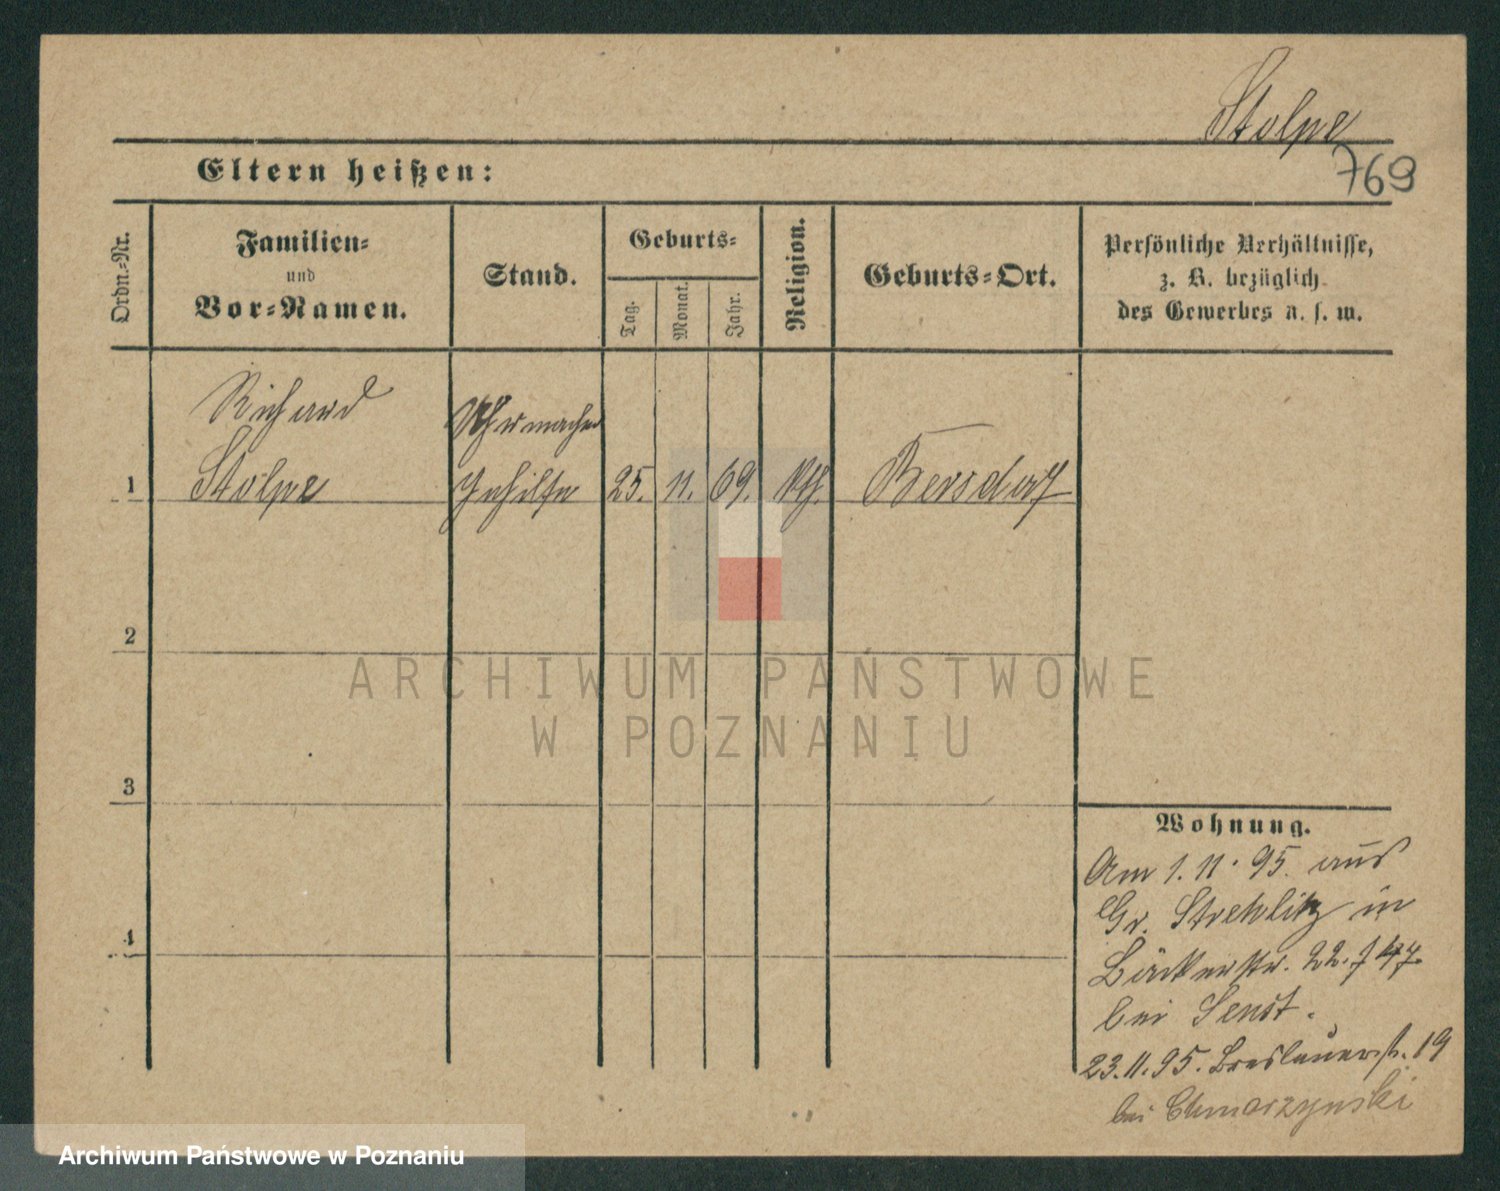 Stolpe
769
Eltern heißen:
Ordn.-Nr.
Familien-
und
Vor-Namen.
Stand.
Geburts-
Tag.
Monat.
Jahr.
Religion.
Geburts-Ort.
Persönliche Verhältnisse,
z. B. bezüglich
des Gewerbes u. s. w.
Richard
Uhrmacher
1 Stolpe Gehilfe 25. 11. 69. kth. Bersdorf
2
3
4
Wohnung.
Am 1. 11. 95. aus
Gr. Strehlitz in
Bäckerstr. 22.
bei Senst.
23. 11. 95. Breslauerstr. 19
bei
ARCHIWUM PAŃSTWOWE
W POZNANIU
Archiwum Państwowe w Poznaniu